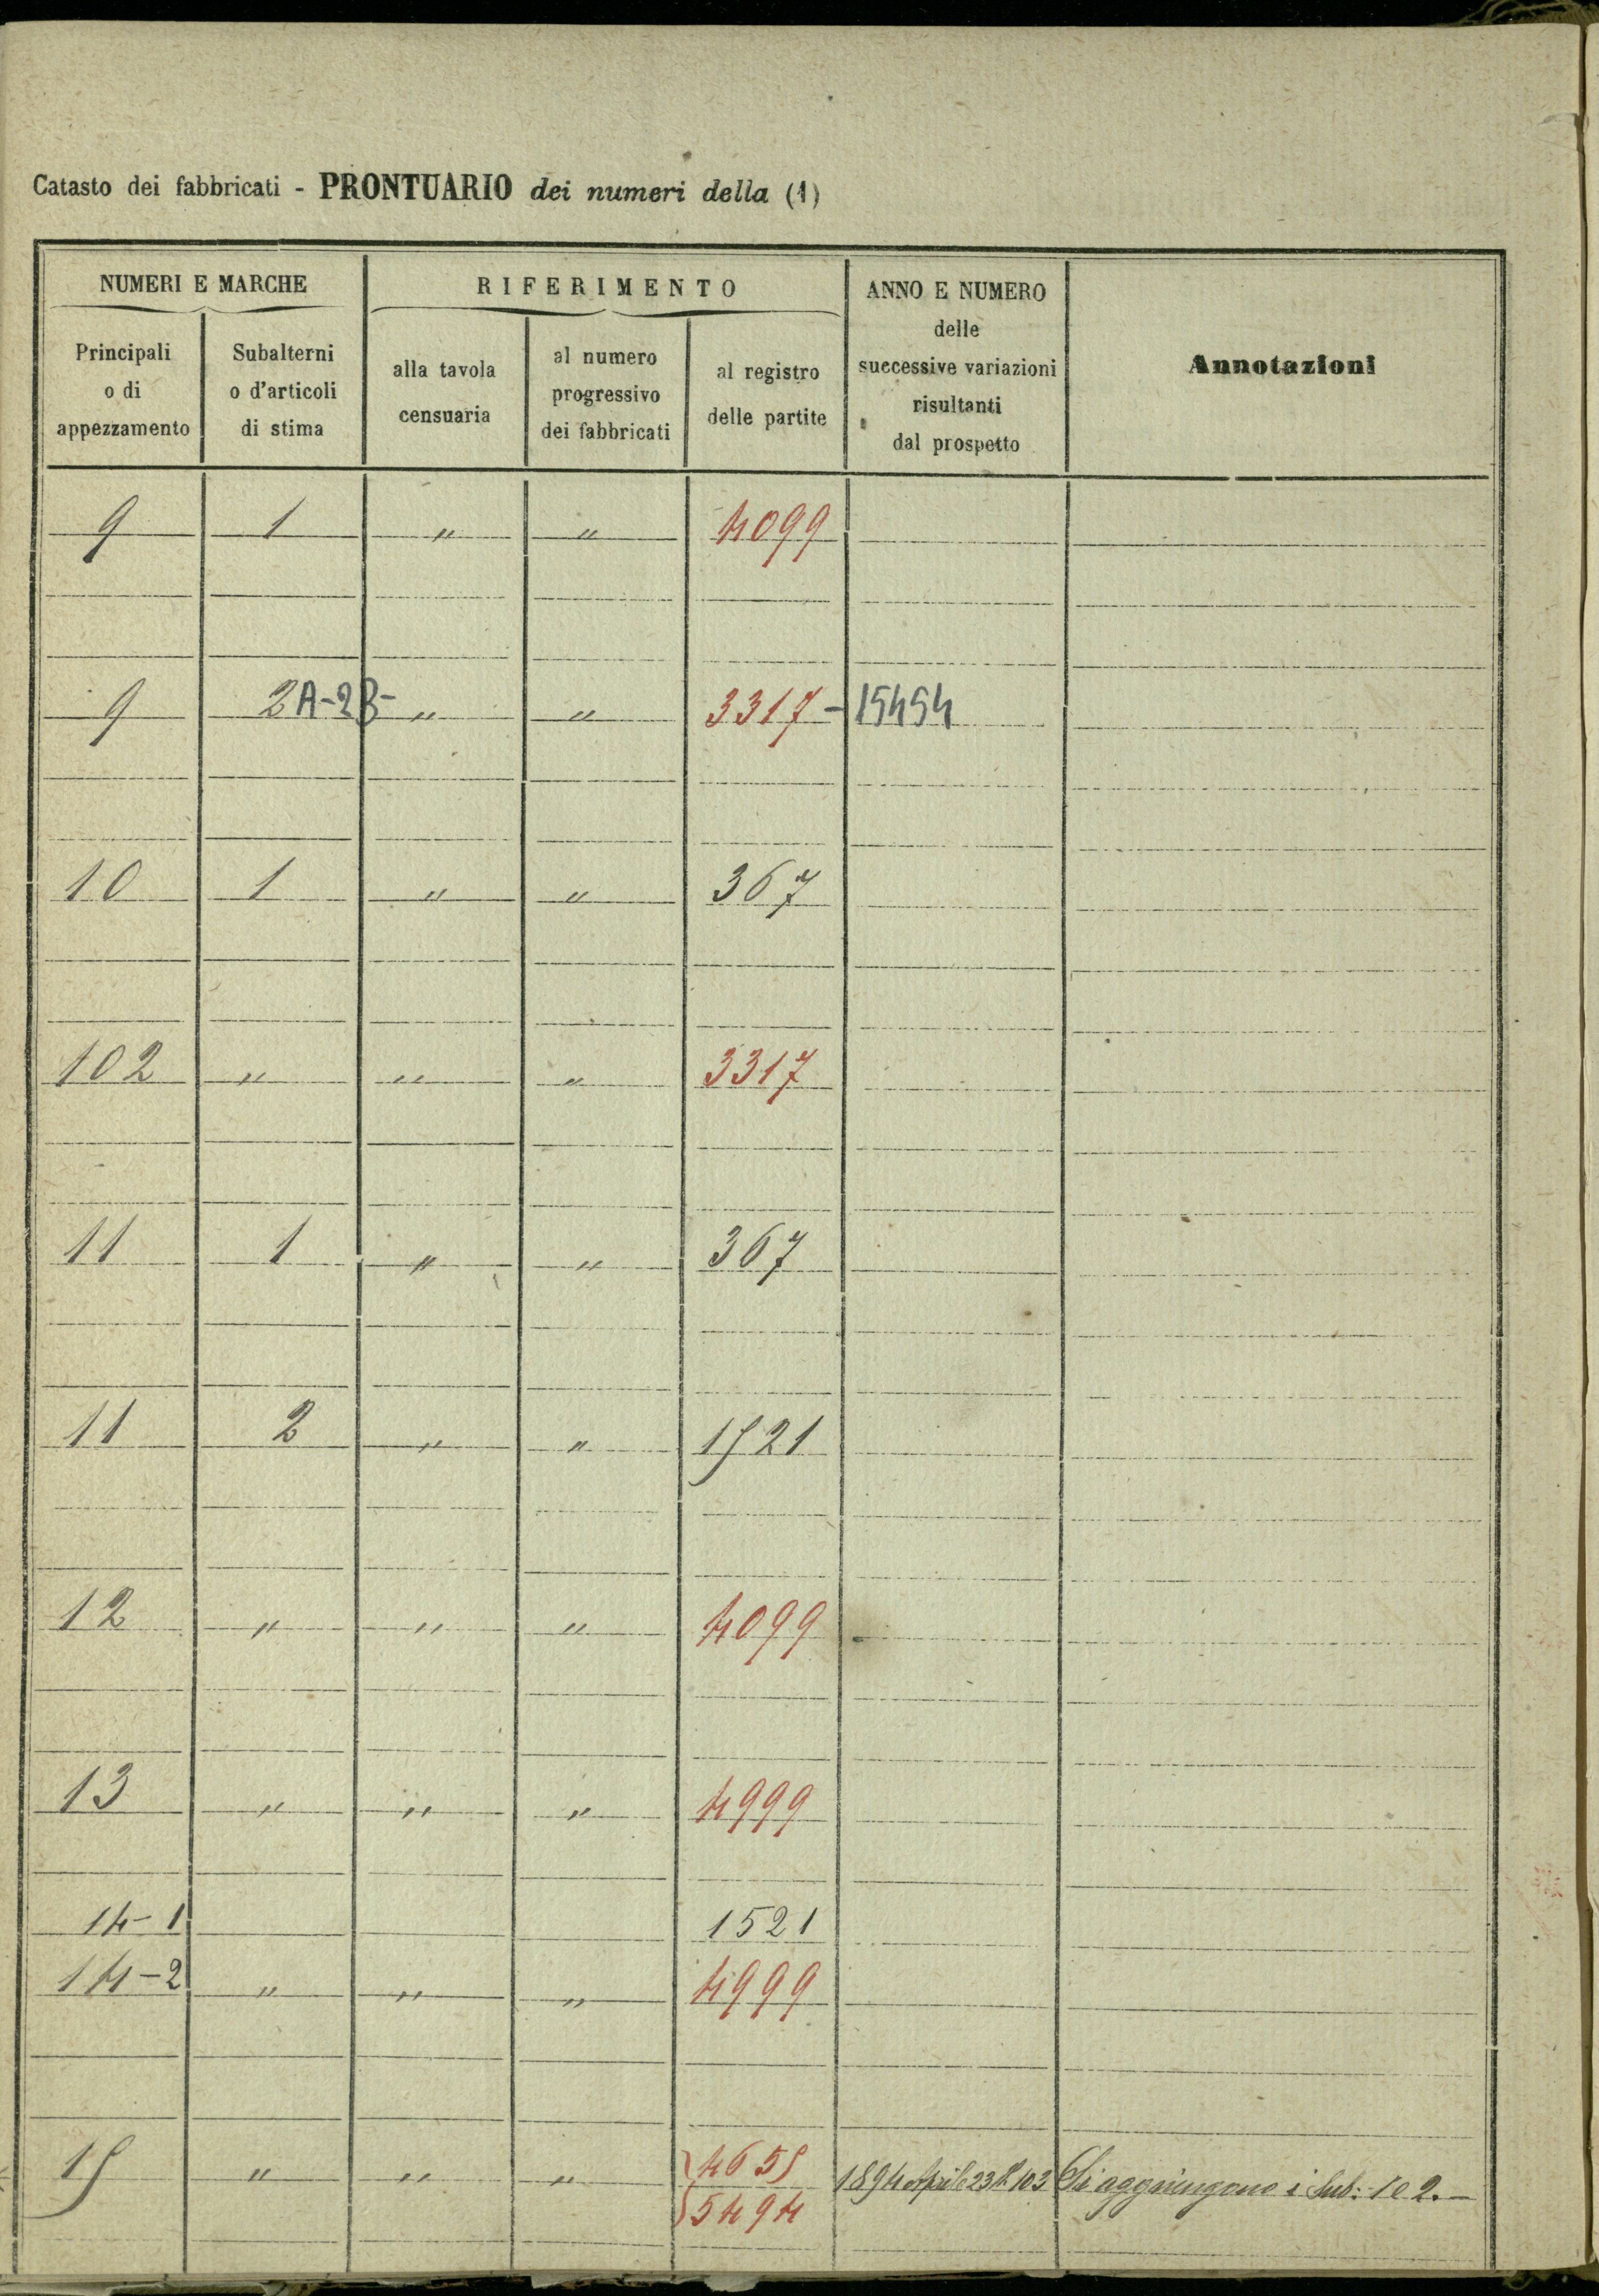 Catasto dei fabbricati - PRONTUARIO dei numeri della (1)
NUMERI E MARCHE
RIFERIMENTO
ANNO E NUMERO
delle
successive variazioni
risultanti
dal prospetto
Annotazioni
Principali
o di
appezzamento
Subalterni
o d'articoli
di stima
alla tavola
censuaria
al numero
progressivo
dei fabbricati
al registro
delle partite
9 1 " " 4099
9 2A-2B- " " 3317 - 15454
10 1 " " 367
102 " " " 3317
11 1 " " 367
11 2 " " 1521
12 " " " 4099
13 " " " 4999
14-1 1521
14-2 " " " 4999
15 " " " 4655 1894 Aprile 23 N. 103 Si aggiungono i Sub: 1 e 2.-
5494